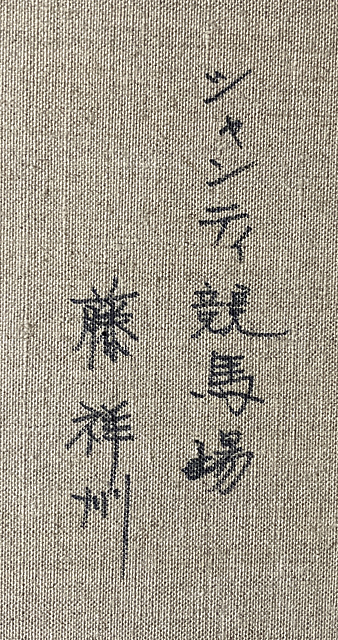 シャンティ競馬場
藤祥州